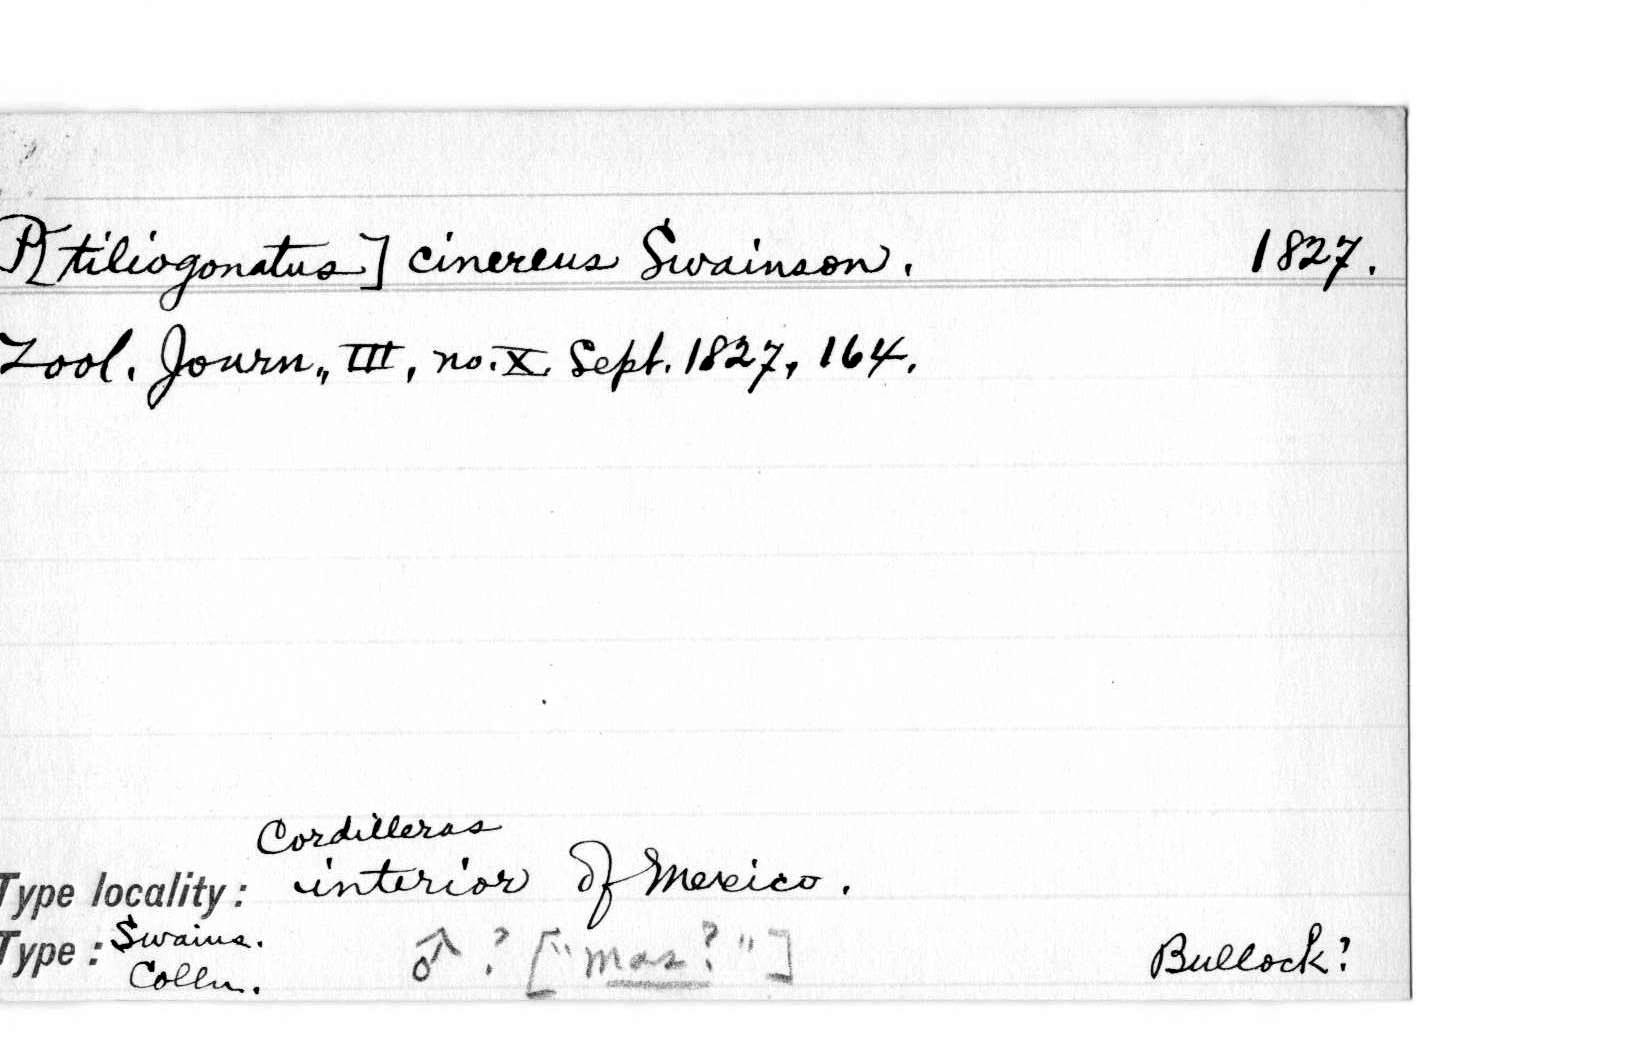 P[tiliogonatus] cinereus Swainson. 1827.
Zool. Journ., III, no. X, Sept. 1827, 164.
Cordilleras
Type locality: interior of Mexico.
Type: Swains. Colln. ♂? ["mas?"] Bullock?